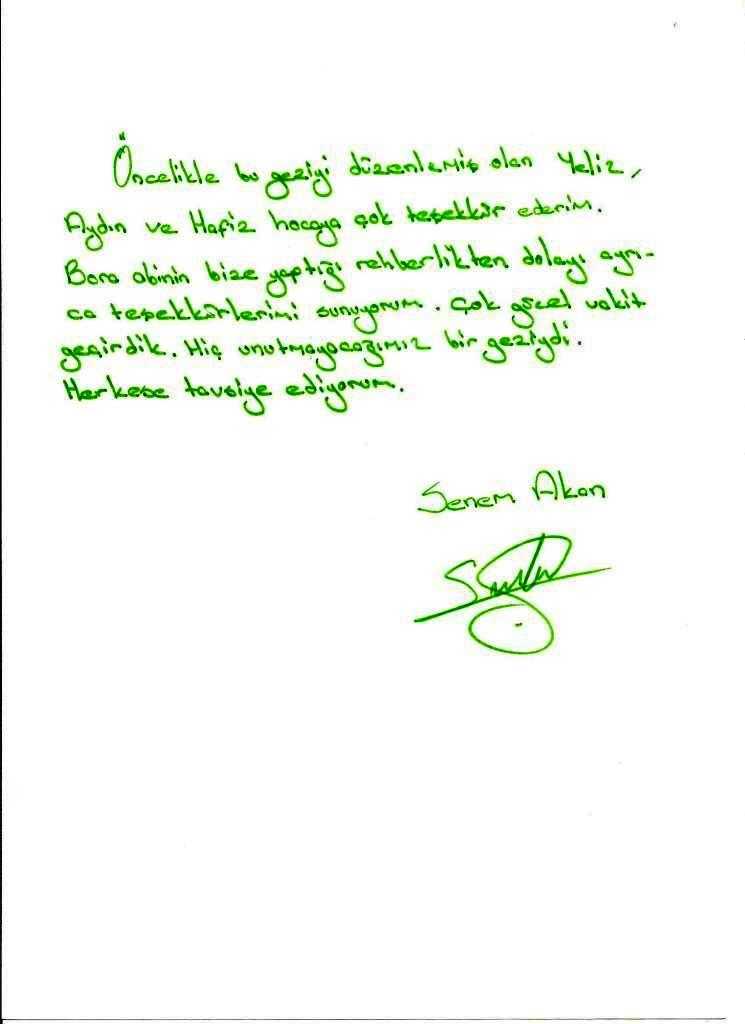 Öncelikle bu geziyi düzenlemiş olan Yeliz,
Aydın ve Hafiz hocaya çok teşekkür ederim.
Bora abinin bize yaptığı rehberlikten dolayı ayrı-
ca teşekkürlerimi sunuyorum. Çok güzel vakit
geçirdik. Hiç unutmayacağımız bir geziydi.
Herkese tavsiye ediyorum.
Senem Akan